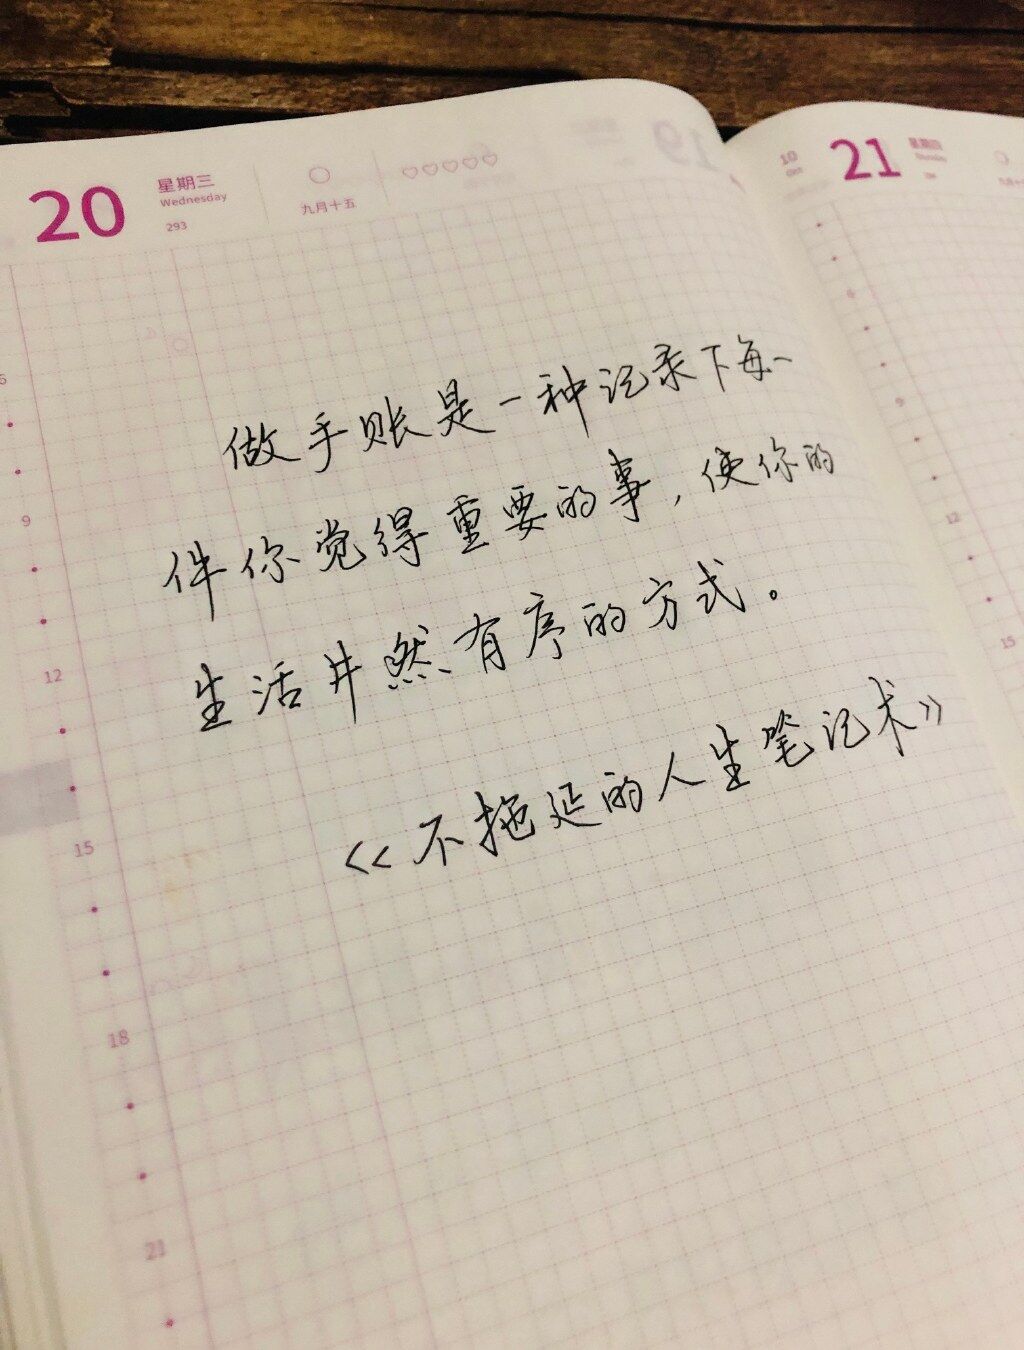 20 星期三
Wednesday
293
九月十五
19
10
21
做手账是一种记录下每一
件你觉得重要的事，使你的
生活井然有序的方式。
《不拖延的人生笔记术》
6
9
12
15
18
21
9
12
15